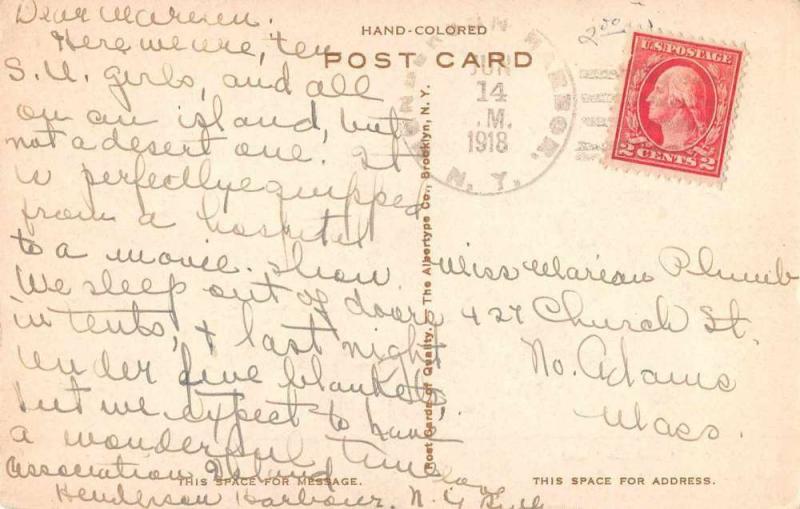 Dear Marion.
Here we are, ten
S.U. girls, and all
on an island, but
not a desert one. It
is perfectly equipped
from a hospital
to a movie show.
We sleep out of doors
in tents, + last night
under five blankets,
but we expect to have
a wonderful time
Association Island
Henderson Harbour, N.Y.
Love
Ruth
HAND-COLORED
POST CARD
HENDERSON HARBOR,
N.Y.
JUN
14
.M.
1918
200
U.S. POSTAGE
2 CENTS 2
Post Cards of Quality. — The Albertype Co., Brooklyn, N. Y.
Miss Marion Plumb
427 Church St.
No. Adams
Mass.
THIS SPACE FOR MESSAGE.
THIS SPACE FOR ADDRESS.